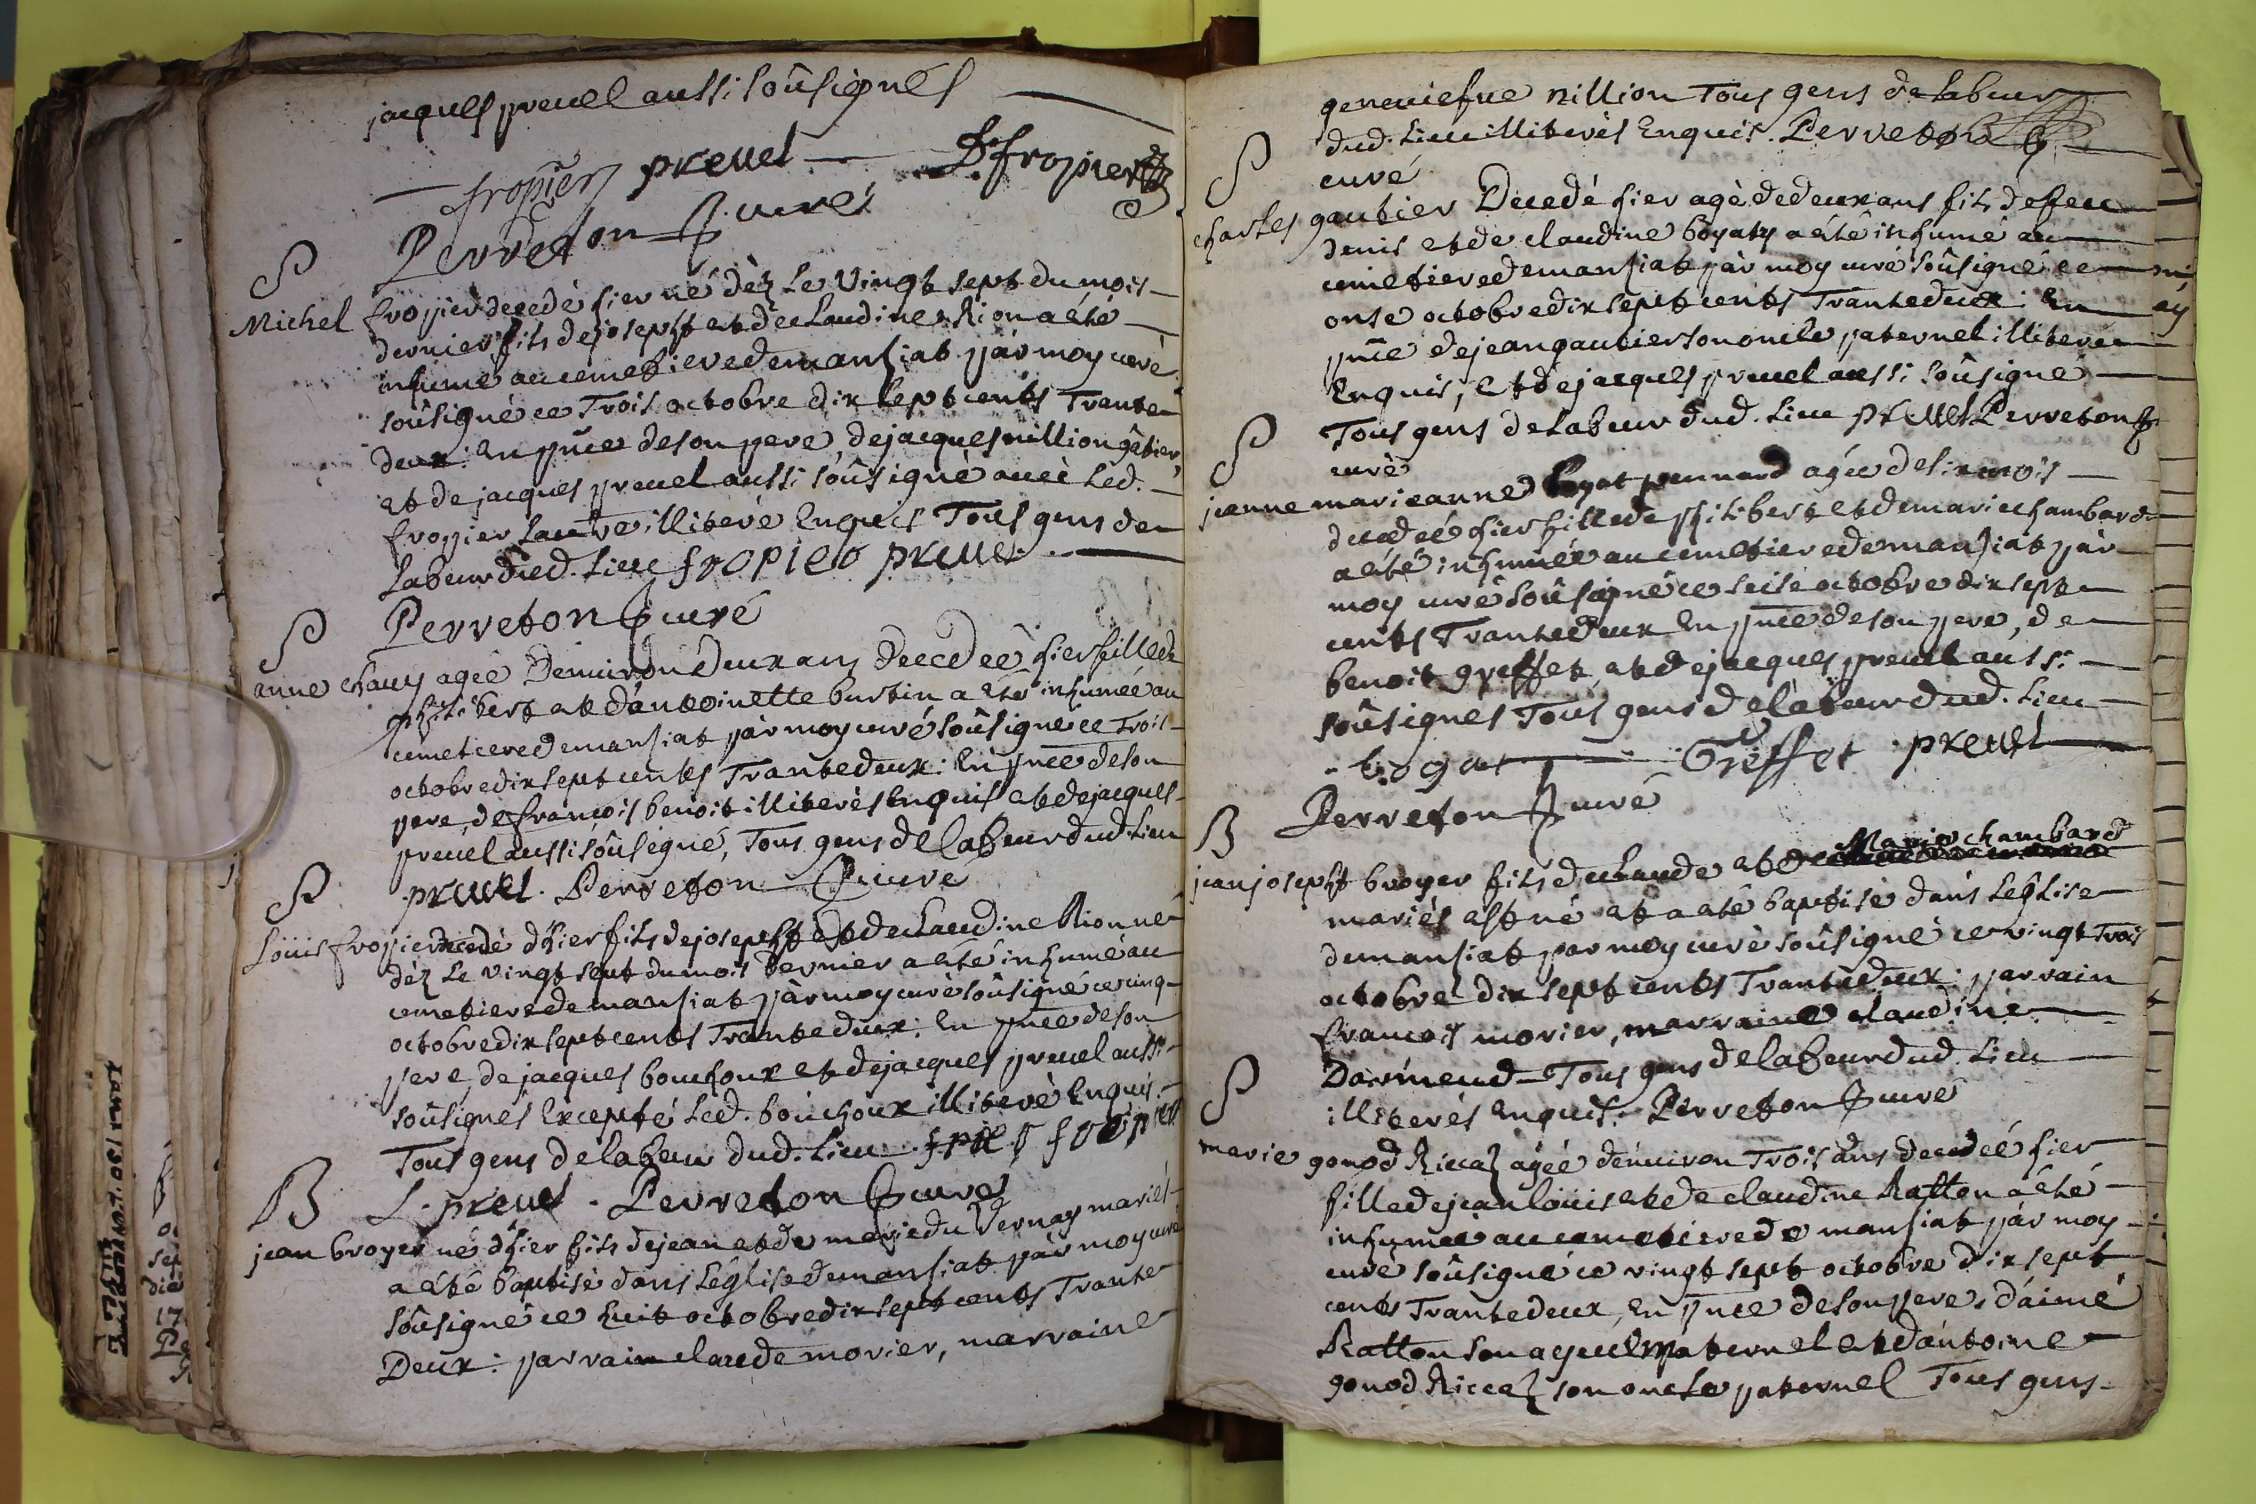 jacques preuel aussi soûsignés
fropier preuel D. fropier
Perreton curé
S
Michel fropier decedé hier né dèz le vingt sept du mois
dernier fils de joseph et de claudine Rion a été
inhumé au cemetiere de mansiat pàr moy curé
soûsigné ce Trois octobre dix sept cents Trante
deux: En pnce de son pere, de jacques nillion
et de jacques preuel aussi soûsigné auec led.
fropier lautre illiteré Enquis Tous gens de
labeur dud. lieu fropier preuel
Perreton curé
S
anne chaux agée D'enuiron deux ans decedée hier fille de
philibert et d'antoinette burtin a eté inhumée au
cemetiere de mansiat pàr moy curé soûsigné ce Trois
octobre dix sept cents Trante deux: En pnce de son
pere, de francois benoit illiterés Enquis et de jacques
preuel aussi soûsigné, Tous gens de labeur dud. lieu
preuel. Perreton curé
S
Loüis fropier decedé d'hier fils de joseph et de claudine Rion né
dèz le vingt sept du mois dernier a eté inhumé au
cemetiere de mansiat pàr moy curé soûsigné ce cinq
octobre dix sept cents Trante deux: En pnce de son
pere, de jacques bouchoux et de jacques preuel aussi
soûsignés Excepté led. boüchoux illiteré Enquis.
Tous gens de labeur dud. lieu fropier
preuel. Perreton curé
B
jean broyer né d'hier fils de jean et de marie du Vernay mariés
a été baptisé dans l'église de mansiat pàr moy curé
soûsigné ce huit octobre dix sept cents Trante
Deux: parrain claude morier, marraine
geneuiefue nillion Tous gens de labeur
dud. lieu illiterés Enquis. Perreton
curé
S
charles gautier Decedé hier agé de deux ans fils de feu
denis et de claudine boyat a été inhumé au
cemetiere de mansiat pàr moy curé soûsigné ce
onse octobre dix sept cents Trante deux: En
pnce de jean gautier son oncle paternel illiteré
Enquis, et de jacques preuel aussi soûsigné
Tous gens de labeur dud. lieu preuel Perreton
curé
S
jeanne marieanne boyat pennard agée de six mois
decedée hier fille de philibert et de marie chambard
a été inhumée au cemetiere de mansiat pàr
moy curé soûsigné ce seise octobre dix sept
cents Trante deux En pnce de son pere, de
benoit greffet et de jacques preuel aussi
soûsignes Tous gens de labeur dud. lieu
boyat Greffet preuel
Perreton curé
B
Marie chambard
jean joseph broyer fils de claude et de
mariés est né et a eté baptisé dans l'église
de mansiat par moy curé soûsigné ce vingt Trois
octobre dix sept cents Trante deux: parrain
francois morier, marraine claudine
Tous gens de labeur dud. lieu
illiterés Enquis. Perreton curé
S
marie gonod Riccaz agée d'enuiron Trois ans decedée hier
fille de jean louis et de claudine Ratton a été
inhumée au cemetiere de mansiat pàr moy
curé soûsigné ce vingt sept octobre dix sept
cents Trante deux, En pnce de son pere, d'aimé
Ratton son ayeul maternel et d'antoine
gonod Riccaz son oncle paternel Tous gens